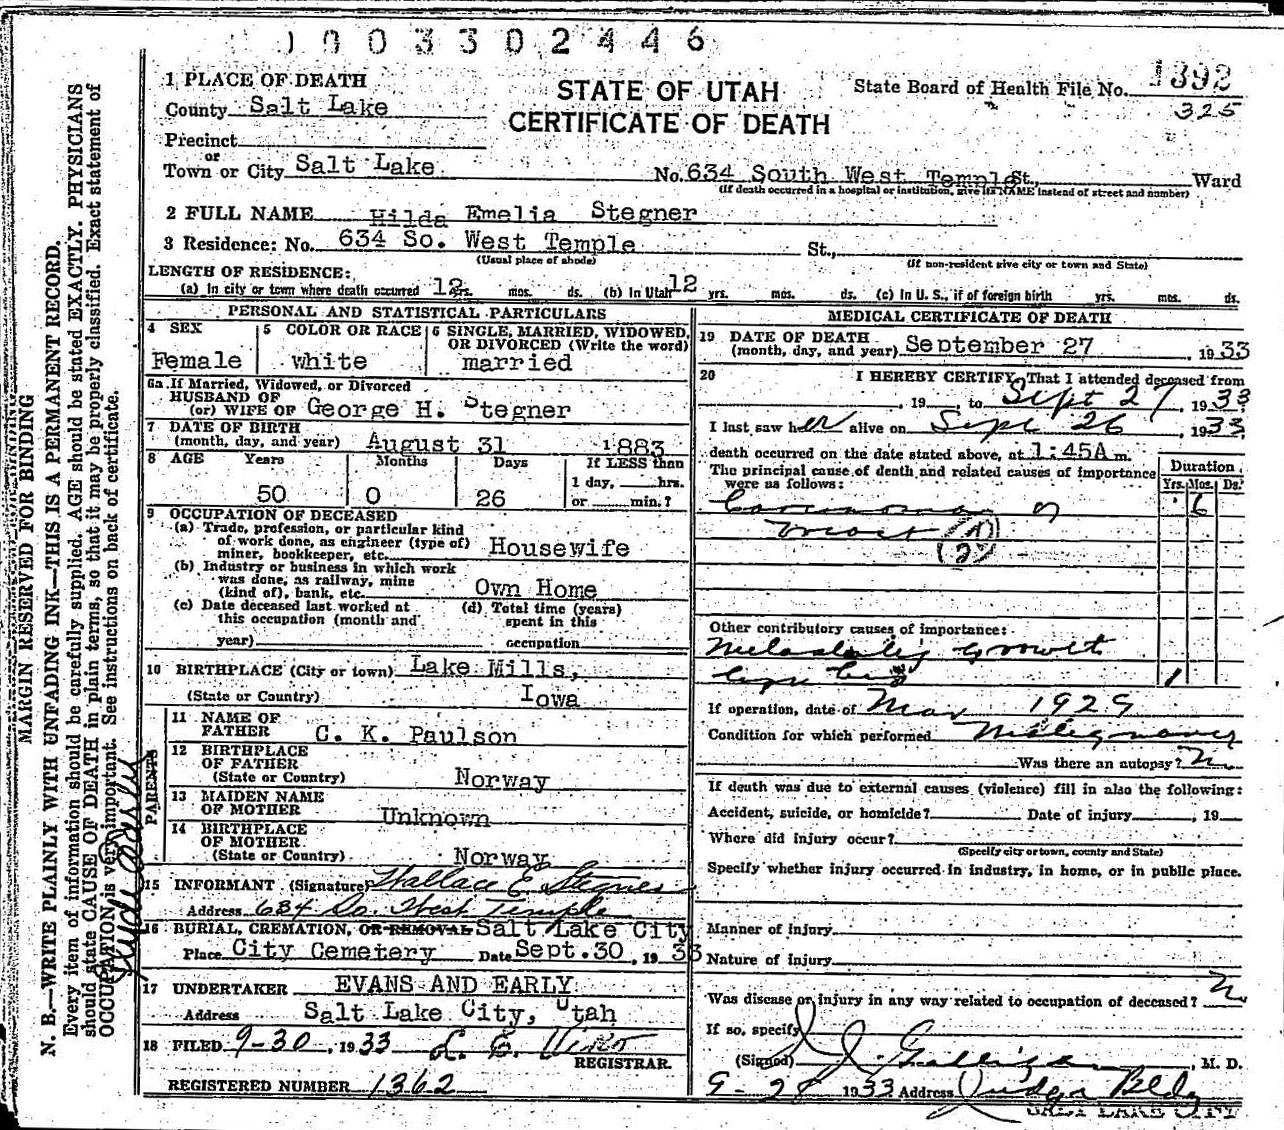 1003302446
1 PLACE OF DEATH
STATE OF UTAH
CERTIFICATE OF DEATH
State Board of Health File No. 1392
325
County Salt Lake
Precinct
or
Town or City Salt Lake No. 634 South West Temple St., Ward
(If death occurred in a hospital or institution, give its NAME instead of street and number)
2 FULL NAME Hilda Emelia Stegner
3 Residence: No. 634 So. West Temple St.,
(Usual place of abode) (If non-resident give city or town and State)
LENGTH OF RESIDENCE:
(a) In city or town where death occurred 12 yrs. mos. ds. (b) In Utah 12 yrs. mos. ds. (c) In U. S., if of foreign birth yrs. mos. ds.
PERSONAL AND STATISTICAL PARTICULARS
4 SEX 5 COLOR OR RACE 6 SINGLE, MARRIED, WIDOWED, OR DIVORCED (Write the word)
Female white married
6a If Married, Widowed, or Divorced
HUSBAND OF
(or) WIFE OF George H. Stegner
7 DATE OF BIRTH
(month, day, and year) August 31 1883
8 AGE Years Months Days If LESS than
1 day, hrs.
50 0 26 or min.?
9 OCCUPATION OF DECEASED
(a) Trade, profession, or particular kind
of work done, as engineer (type of)
miner, bookkeeper, etc. Housewife
(b) Industry or business in which work
was done, as railway, mine
(kind of), bank, etc. Own Home
(c) Date deceased last worked at (d) Total time (years)
this occupation (month and spent in this
year) occupation
10 BIRTHPLACE (City or town) Lake Mills,
(State or Country) Iowa
PARENTS
11 NAME OF
FATHER C. K. Paulson
12 BIRTHPLACE
OF FATHER
(State or Country) Norway
13 MAIDEN NAME
OF MOTHER Unknown
14 BIRTHPLACE
OF MOTHER
(State or Country) Norway
15 INFORMANT (Signature) Wallace E. Stegner
Address 634 So. West Temple
16 BURIAL, CREMATION, OR REMOVAL Salt Lake City
Place City Cemetery Date Sept. 30, 1933
17 UNDERTAKER EVANS AND EARLY
Address Salt Lake City, Utah
18 FILED 9-30, 1933 L. E.
REGISTRAR.
REGISTERED NUMBER 1362
MEDICAL CERTIFICATE OF DEATH
19 DATE OF DEATH
(month, day, and year) September 27, 1933
20 I HEREBY CERTIFY, That I attended deceased from
, 19 , to Sept 27, 1933
I last saw her alive on Sept 26, 1933
death occurred on the date stated above, at 1:45A m.
The principal cause of death and related causes of importance
were as follows:
Duration
Yrs. Mos. Ds.
Carcinoma of 6
Other contributory causes of importance:
1
If operation, date of Mar 1929
Condition for which performed Malignancy
Was there an autopsy? N
If death was due to external causes (violence) fill in also the following:
Accident, suicide, or homicide? Date of injury , 19
Where did injury occur?
(Specify city or town, county and State)
Specify whether injury occurred in industry, in home, or in public place.
Manner of injury
Nature of injury
Was disease or injury in any way related to occupation of deceased? N
If so, specify
(Signed) , M. D.
9-28 1933 Address Judge Bldg
SALT LAKE CITY
MARGIN RESERVED FOR BINDING
N. B.—WRITE PLAINLY WITH UNFADING INK—THIS IS A PERMANENT RECORD.
Every item of information should be carefully supplied. AGE should be stated EXACTLY. PHYSICIANS
should state CAUSE OF DEATH in plain terms, so that it may be properly classified. Exact statement of
OCCUPATION is very important. See instructions on back of certificate.